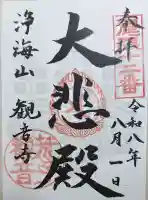 奉拝
令和八年
八月一日
大悲殿
浄海山
観音寺